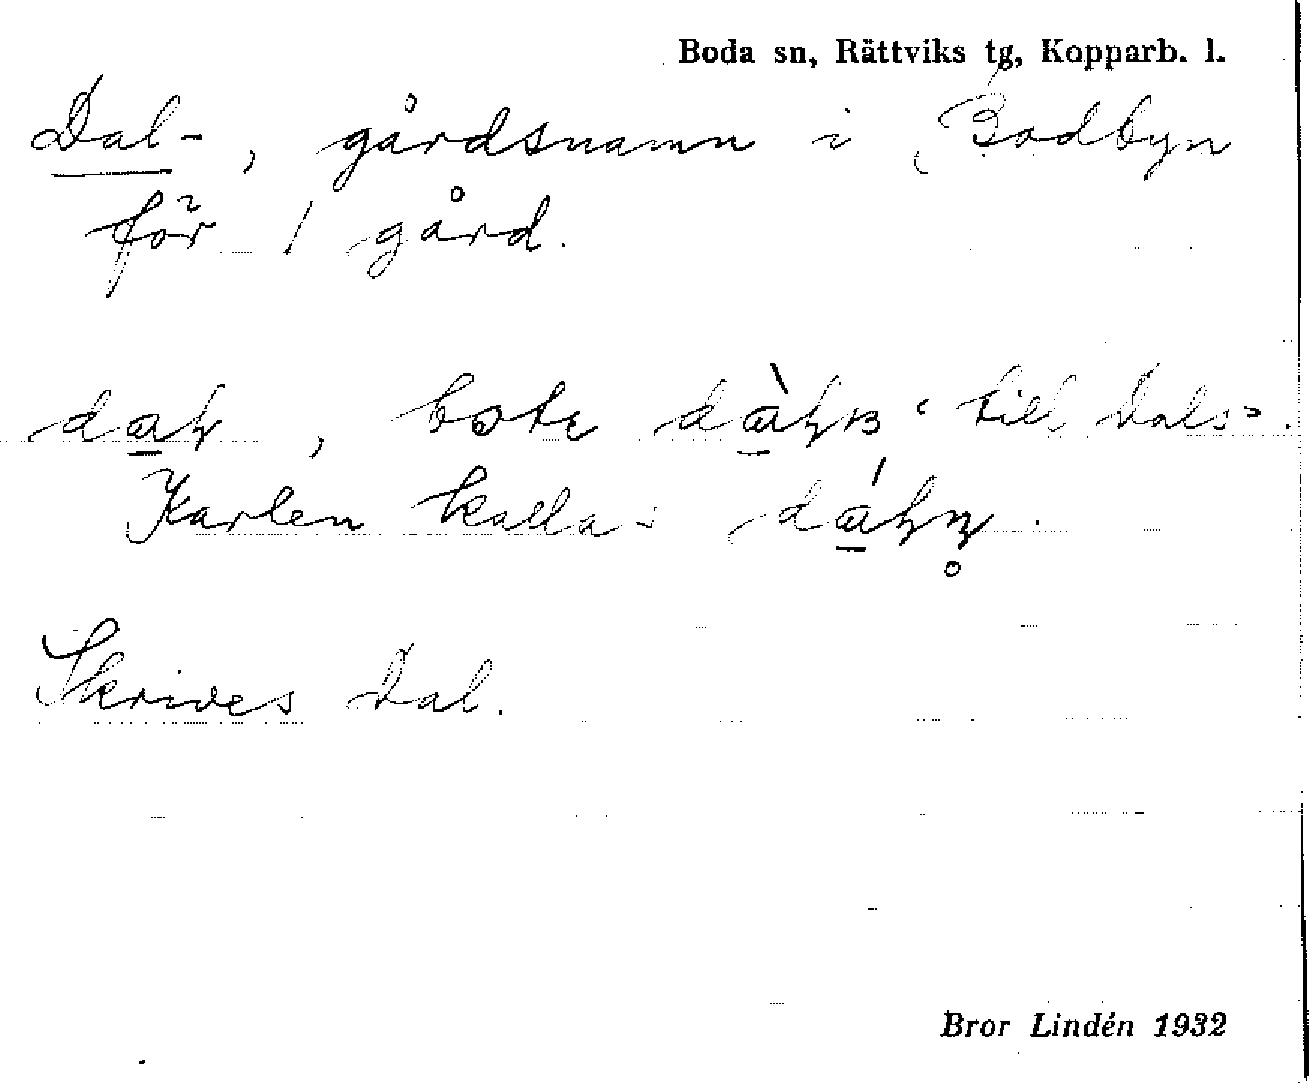 Boda sn, Rättviks tg, Kopparb. l.
Dal-, gårdsnamn i Bodbyn
för 1 gård.
"till Dals".
Karlen kallas
Skrives Dal.
Bror Lindén 1932